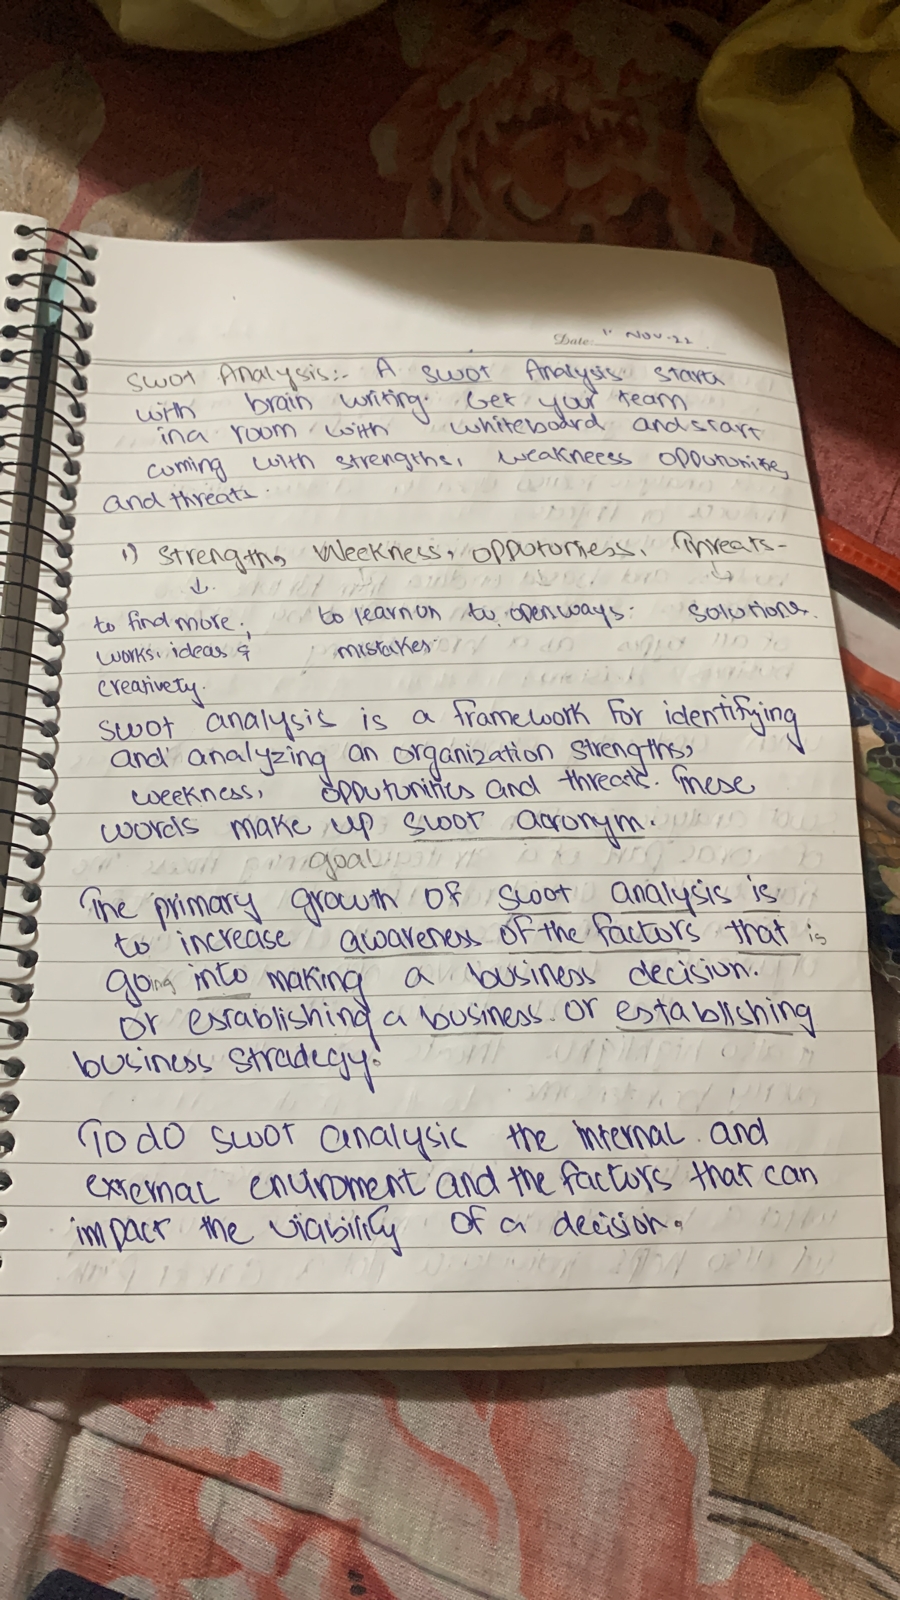 Date: 1" NOV-22
Swot Analysis:- A swot Analysis start
with brain writing. Get your team
in a room with whiteboard and start
coming with strengths, weakneess oppoutunities,
and threats.
1) Strengths, Weekness, opputurness, Threats-
to find more, to learn on to open ways. solutions.
works, ideas & mistakes.
creativety.
swot analysis is a framework for identifying
and analyzing an organization strengths,
weekness, opputunities and threats. These
words make up swot acronym.
goal
The primary growth of swot analysis is
to increase awareness of the factors that is
going into making a business decision.
or establishing a business. or establishing
business stradegy.
To do swot analysis the internal and
external enviroment and the factors that can
impact the viability of a decision.